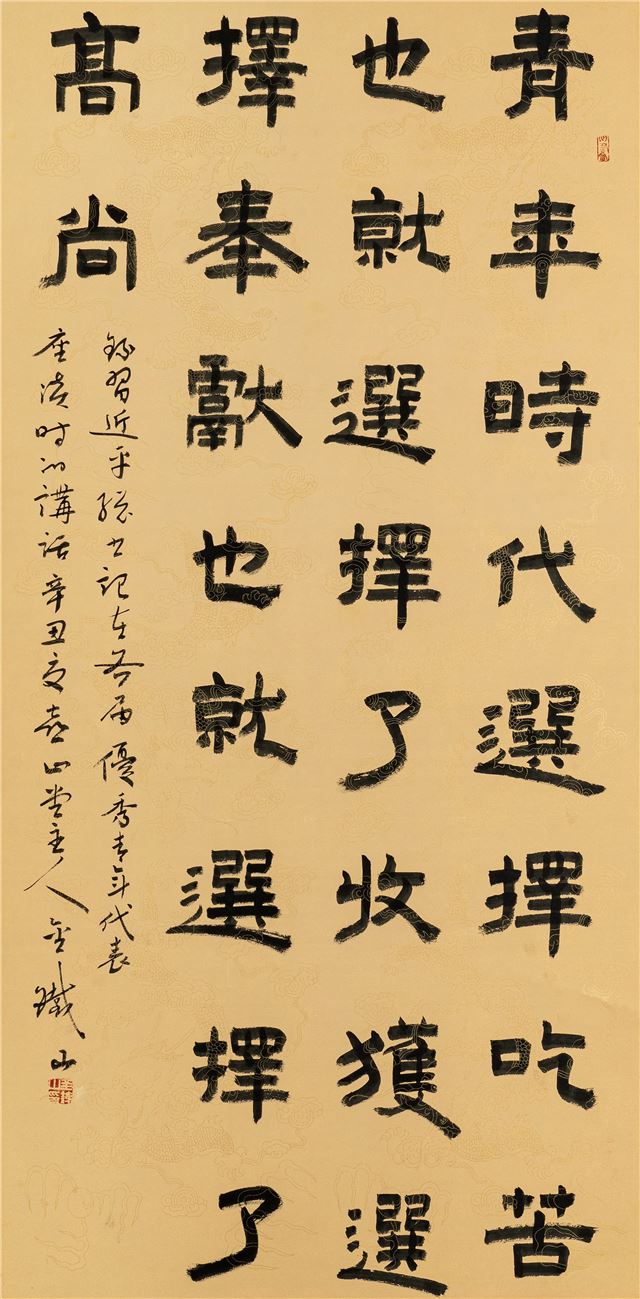 青年時代選擇吃苦
也就選擇了收獲選
擇奉獻也就選擇了
髙尚
錄習近平總书記在各届優秀青年代表
座談时的講話辛丑夏山堂主人金鐵山